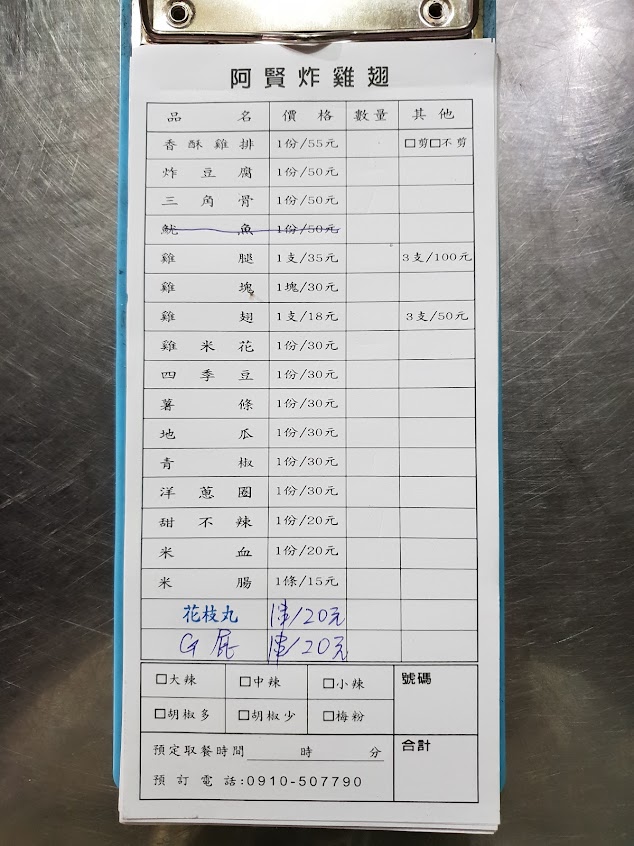 阿賢炸雞翅
品名 價格 數量 其他
香酥雞排 1份/55元 □剪□不剪
炸豆腐 1份/50元
三角骨 1份/50元
魷魚 1份/50元
雞腿 1支/35元 3支/100元
雞塊 1塊/30元
雞翅 1支/18元 3支/50元
雞米花 1份/30元
四季豆 1份/30元
薯條 1份/30元
地瓜 1份/30元
青椒 1份/30元
洋蔥圈 1份/30元
甜不辣 1份/20元
米血 1份/20元
米腸 1條/15元
花枝丸 1串/20元
G屁 1串/20元
□大辣 □中辣 □小辣 號碼
□胡椒多 □胡椒少 □梅粉
預定取餐時間 時 分 合計
預訂電話:0910-507790